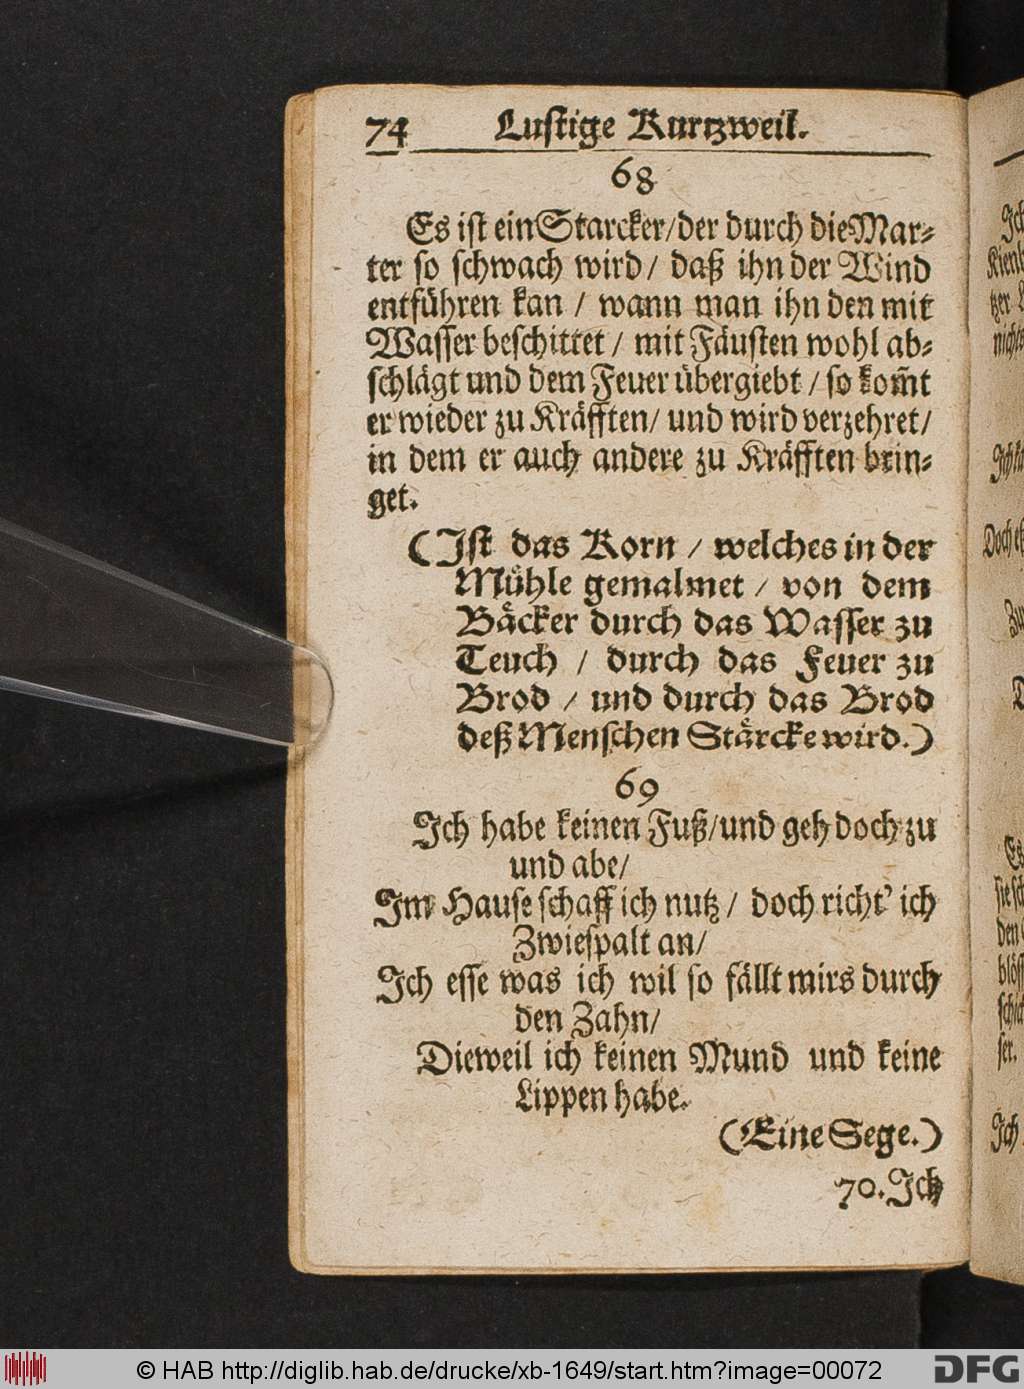 74 Lustige Kurtzweil.
68
Es ist ein Starcker/ der durch die Mar⸗
ter so schwach wird / daß ihn der Wind
entführen kan / wann man ihn den mit
Wasser beschittet / mit Fäusten wohl ab⸗
schlägt und dem Feuer übergiebt / so kom̃t
er wieder zu Kräfften/ und wird verzehret/
in dem er auch andere zu Kräfften brin⸗
get.
(Ist das Korn / welches in der
Mühle gemalmet / von dem
Bäcker durch das Wasser zu
Teuch / durch das Feuer zu
Brod / und durch das Brod
deß Menschen Stärcke wird.)
69
Ich habe keinen Fuß/ und geh doch zu
und abe/
Im Hause schaff ich nutz / doch richt' ich
Zwiespalt an/
Ich esse was ich wil so fällt mirs durch
den Zahn/
Dieweil ich keinen Mund und keine
Lippen habe.
(Eine Sege.)
70. Ich
Ich
nicht
Doch
Es
ser.
Ich
© HAB http://diglib.hab.de/drucke/xb-1649/start.htm?image=00072
DFG